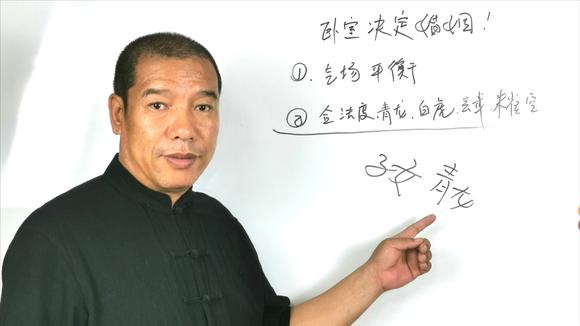 卧室决定婚姻!
①.气场平衡
②合法度.青龙.白虎.朱雀空
子女 青龙